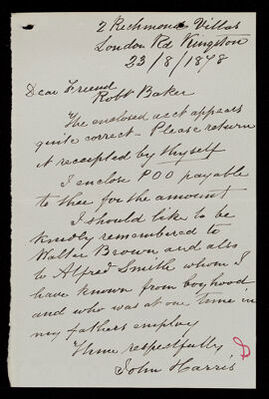 2 Richmond Villas
London Rd Kingston
23/8/1878
Dear Friend
Robt Baker
The enclosed acct appears
quite correct - Please return
it receipted by thyself
I enclose POO payable
to thee for the amount
I should like to be
kindly remembered to
Walter Brown and also
to Alfred Smith whom I
have known from boyhood
and who was at one time in
my fathers employ
Thine respectfully
John Harris